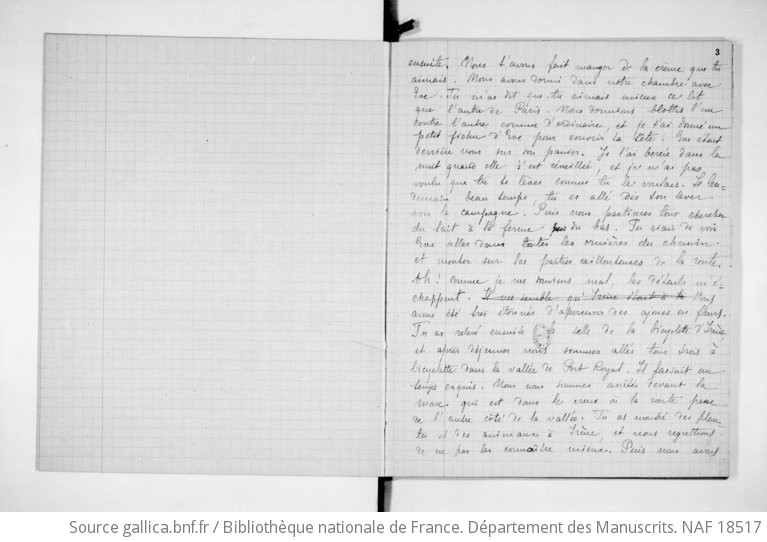 3
ensuite. Nous t'avons fait manger de la crème que tu
aimais. Nous avons dormi dans notre chambre avec
Eve. Tu m'as dit que tu aimais mieux ce lit
que l'autre de Paris. Nous dormions blottis l'un
contre l'autre comme d'ordinaire, et je t'ai donné un
petit fichu d'Eve pour couvrir ta tête. Eve était
derrière nous sur son panier. Je l'ai bercée dans la
nuit quand elle s'est réveillée, et je n'ai pas
voulu que tu te lèves comme tu le voulais. Le len-
demain beau temps, tu es allé dès ton lever
voir la campagne. Puis nous partîmes tous chercher
du lait à la ferme du bas. Tu riais de voir
Eve aller dans toutes les ornières du chemin
et monter sur les parties caillouteuses de la route.
Oh! comme je me souviens mal, les détails m'é-
chappent. Il me semble qu'Irène était à Nous
avons été très étonnés d'apercevoir des ajoncs en fleurs.
Tu as relevé ensuite la selle de la bicyclette d'Irène,
et après déjeuner nous sommes allés tous trois à
bicyclette dans la vallée de Port Royal. Il faisait un
temps exquis. Nous nous sommes arrêtés devant la
mare qui est dans le creux où la route passe
de l'autre côté de la vallée. Tu as montré des plan-
tes et des animaux à Irène, et nous regrettions
de ne pas les connaître mieux. Puis nous avons
Source gallica.bnf.fr / Bibliothèque nationale de France. Département des Manuscrits. NAF 18517